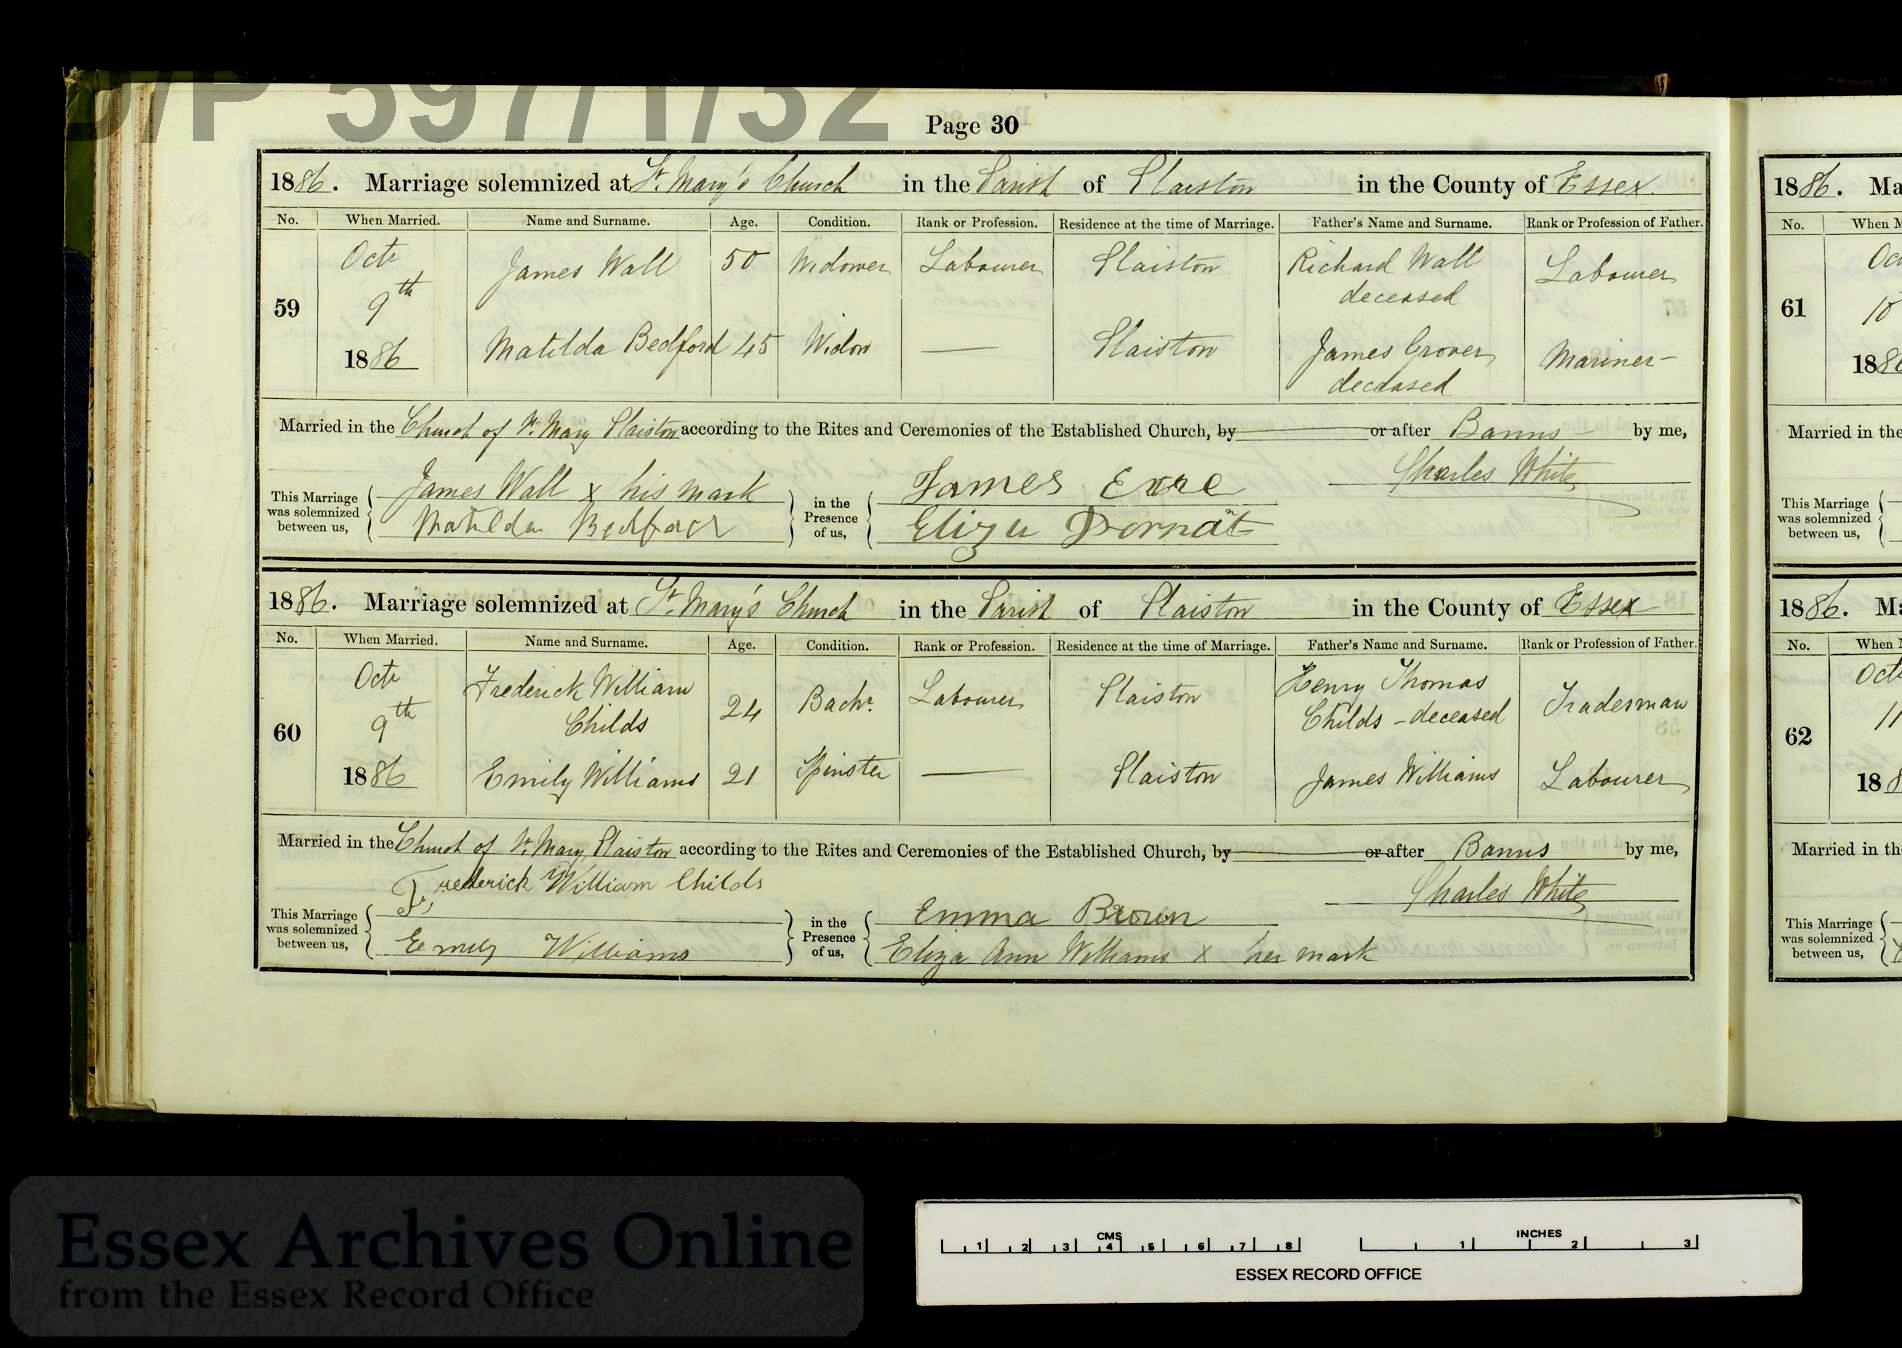 D/P 597/1/32
Page 30
1886. Marriage solemnized at St. Mary's Church in the Parish of Plaistow in the County of Essex
No. When Married. Name and Surname. Age. Condition. Rank or Profession. Residence at the time of Marriage. Father's Name and Surname. Rank or Profession of Father.
59 Octr 9th 1886
James Wall 50 Widower Labourer Plaistow Richard Wall deceased Labourer
Matilda Bedford 45 Widow — Plaistow James Grover deceased Mariner
Married in the Church of St. Mary Plaistow according to the Rites and Ceremonies of the Established Church, by or after Banns by me,
Charles White
This Marriage was solemnized between us,
James Wall x his mark
Matilda Bedford
in the Presence of us,
James
Eliza
1886. Marriage solemnized at St. Mary's Church in the Parish of Plaistow in the County of Essex
No. When Married. Name and Surname. Age. Condition. Rank or Profession. Residence at the time of Marriage. Father's Name and Surname. Rank or Profession of Father.
60 Octr 9th 1886
Frederick William Childs 24 Bachr. Labourer Plaistow Henry Thomas Childs - deceased Tradesman
Emily Williams 21 Spinster — Plaistow James Williams Labourer
Married in the Church of St. Mary, Plaistow according to the Rites and Ceremonies of the Established Church, by or after Banns by me,
Charles White
This Marriage was solemnized between us,
Frederick William Childs
Emily Williams
in the Presence of us,
Emma Brown
Eliza Ann Williams x her mark
1886. Ma
No. When M
61
Oct
10
188
Married in the
This Marriage was solemnized between us,
1886. Ma
No. When M
62
Oct
11
18
Married in th
This Marriage was solemnized between us,
Essex Archives Online
from the Essex Record Office
CMS
1 2 3 4 5 6 7 8
INCHES
1 2 3
ESSEX RECORD OFFICE